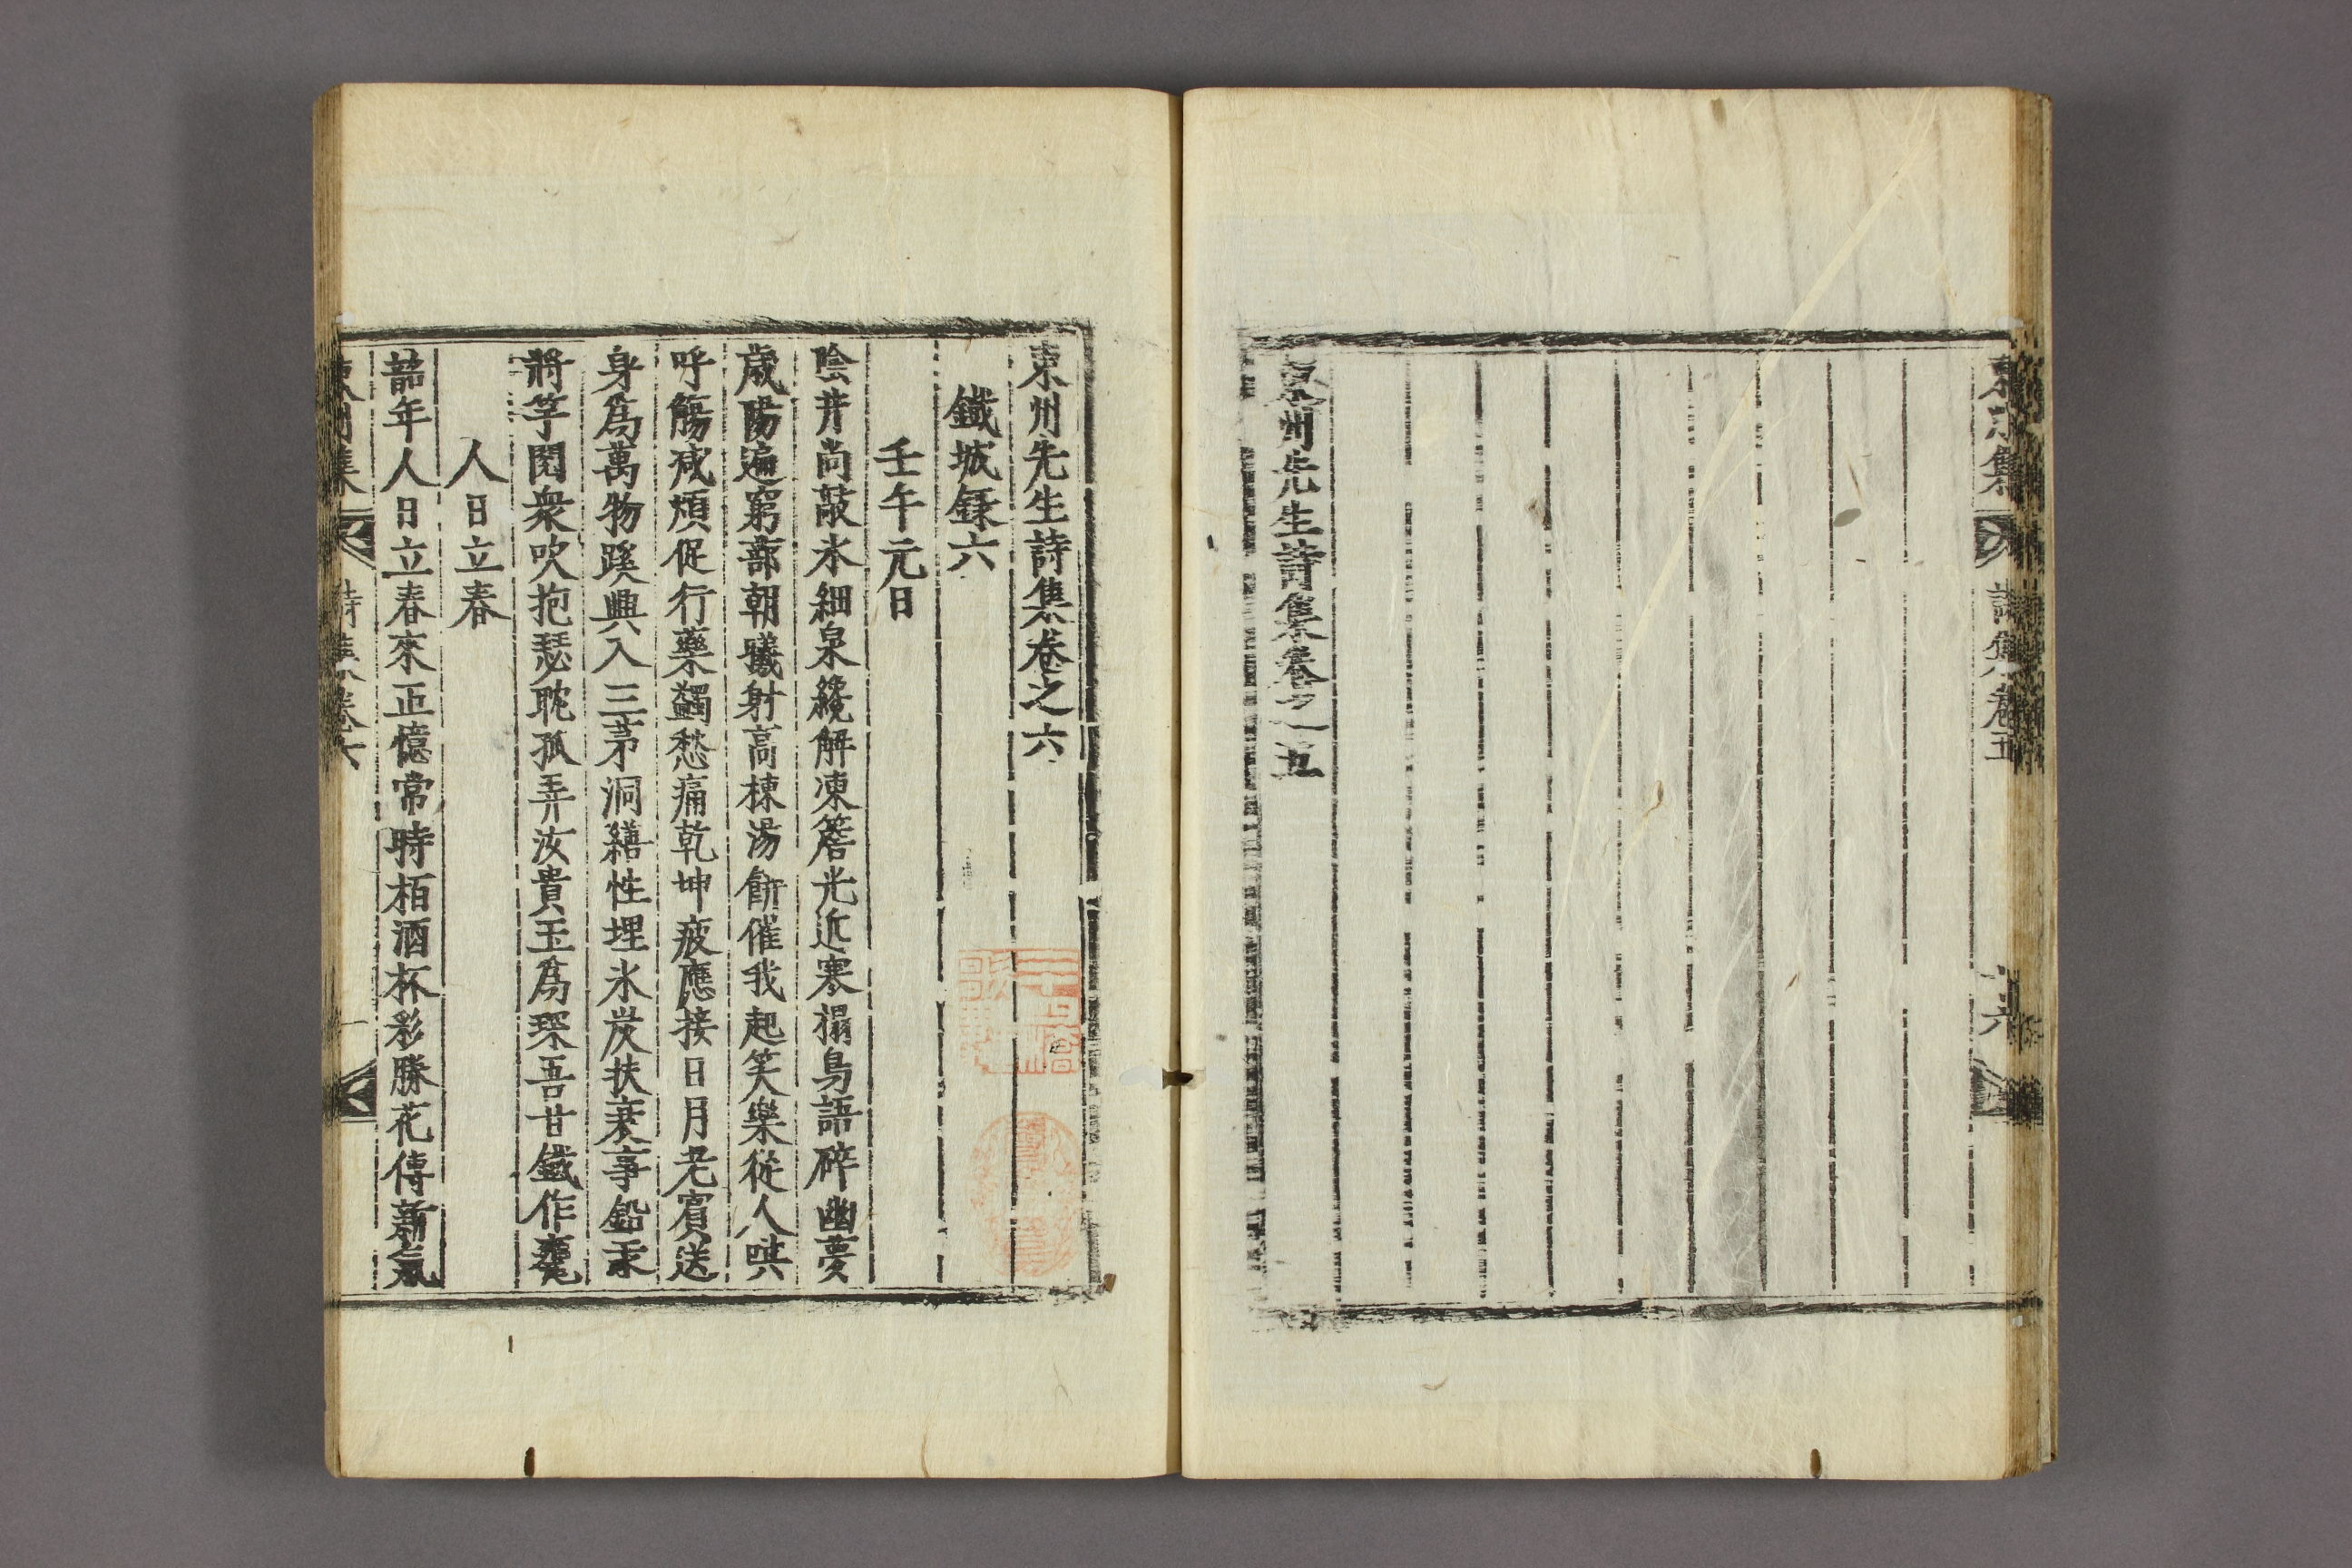 東州集
詩集卷五
十六
東州先生詩集卷之五
東州先生詩集卷之六
鐵城錄六
壬午元日
陰井尚敲氷細泉纔解凍簷光近寒榻鳥語碎幽夢
歲陽遍窮蔀朝曦射高棟湯餠催我起笑樂從人哄
呼觴减煩促行藥蠲愁痛乾坤疲應接日月老賓送
身爲萬物蹊興入三茅洞繕性埋氷炭扶衰事鉛汞
將竽閱衆吹抱瑟耽孤弄汝貴玉爲琛吾甘鐵作甕
人日立春
韶年人日立春來正憶常時栢酒杯彩勝花傳新氣
東州集
詩集卷六
一